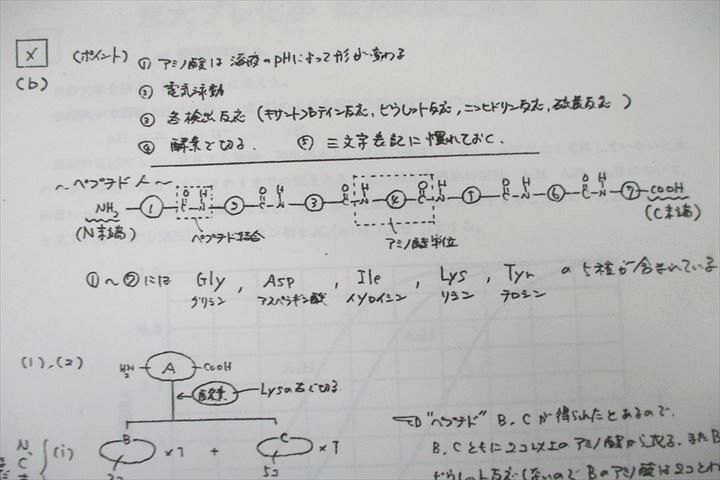 X (ポイント) ① アミノ酸は溶液のpHによって形が変わる
(b) ② 電気泳動
③ 各検出反応 (キサントプロテイン反応, ビウレット反応, ニンヒドリン反応, 硫黄反応)
④ 酵素で切る. ⑤ 三文字表記に慣れておく.
~ペプチド A~
O H O H O H O H O H O H
NH₂ ① C N ② C N ③ C N ④ C N ⑤ C N ⑥ C N ⑦ COOH
(N末端) ペプチド結合 アミノ酸単位 (C末端)
①~⑦には Gly, Asp, Ile, Lys, Tyr の5種が含まれている
グリシン アスパラギン酸 イソロイシン リシン チロシン
(1),(2) H₂N A COOH
酵素 Lysの右で切る
B C
(i) ×T + ×T
5コ
"ペプチド" B, C が得られたとあるので.
B, C ともに2コ以上のアミノ酸から成る. また B
ビウレット反応しないので Bのアミノ酸は2コとわ